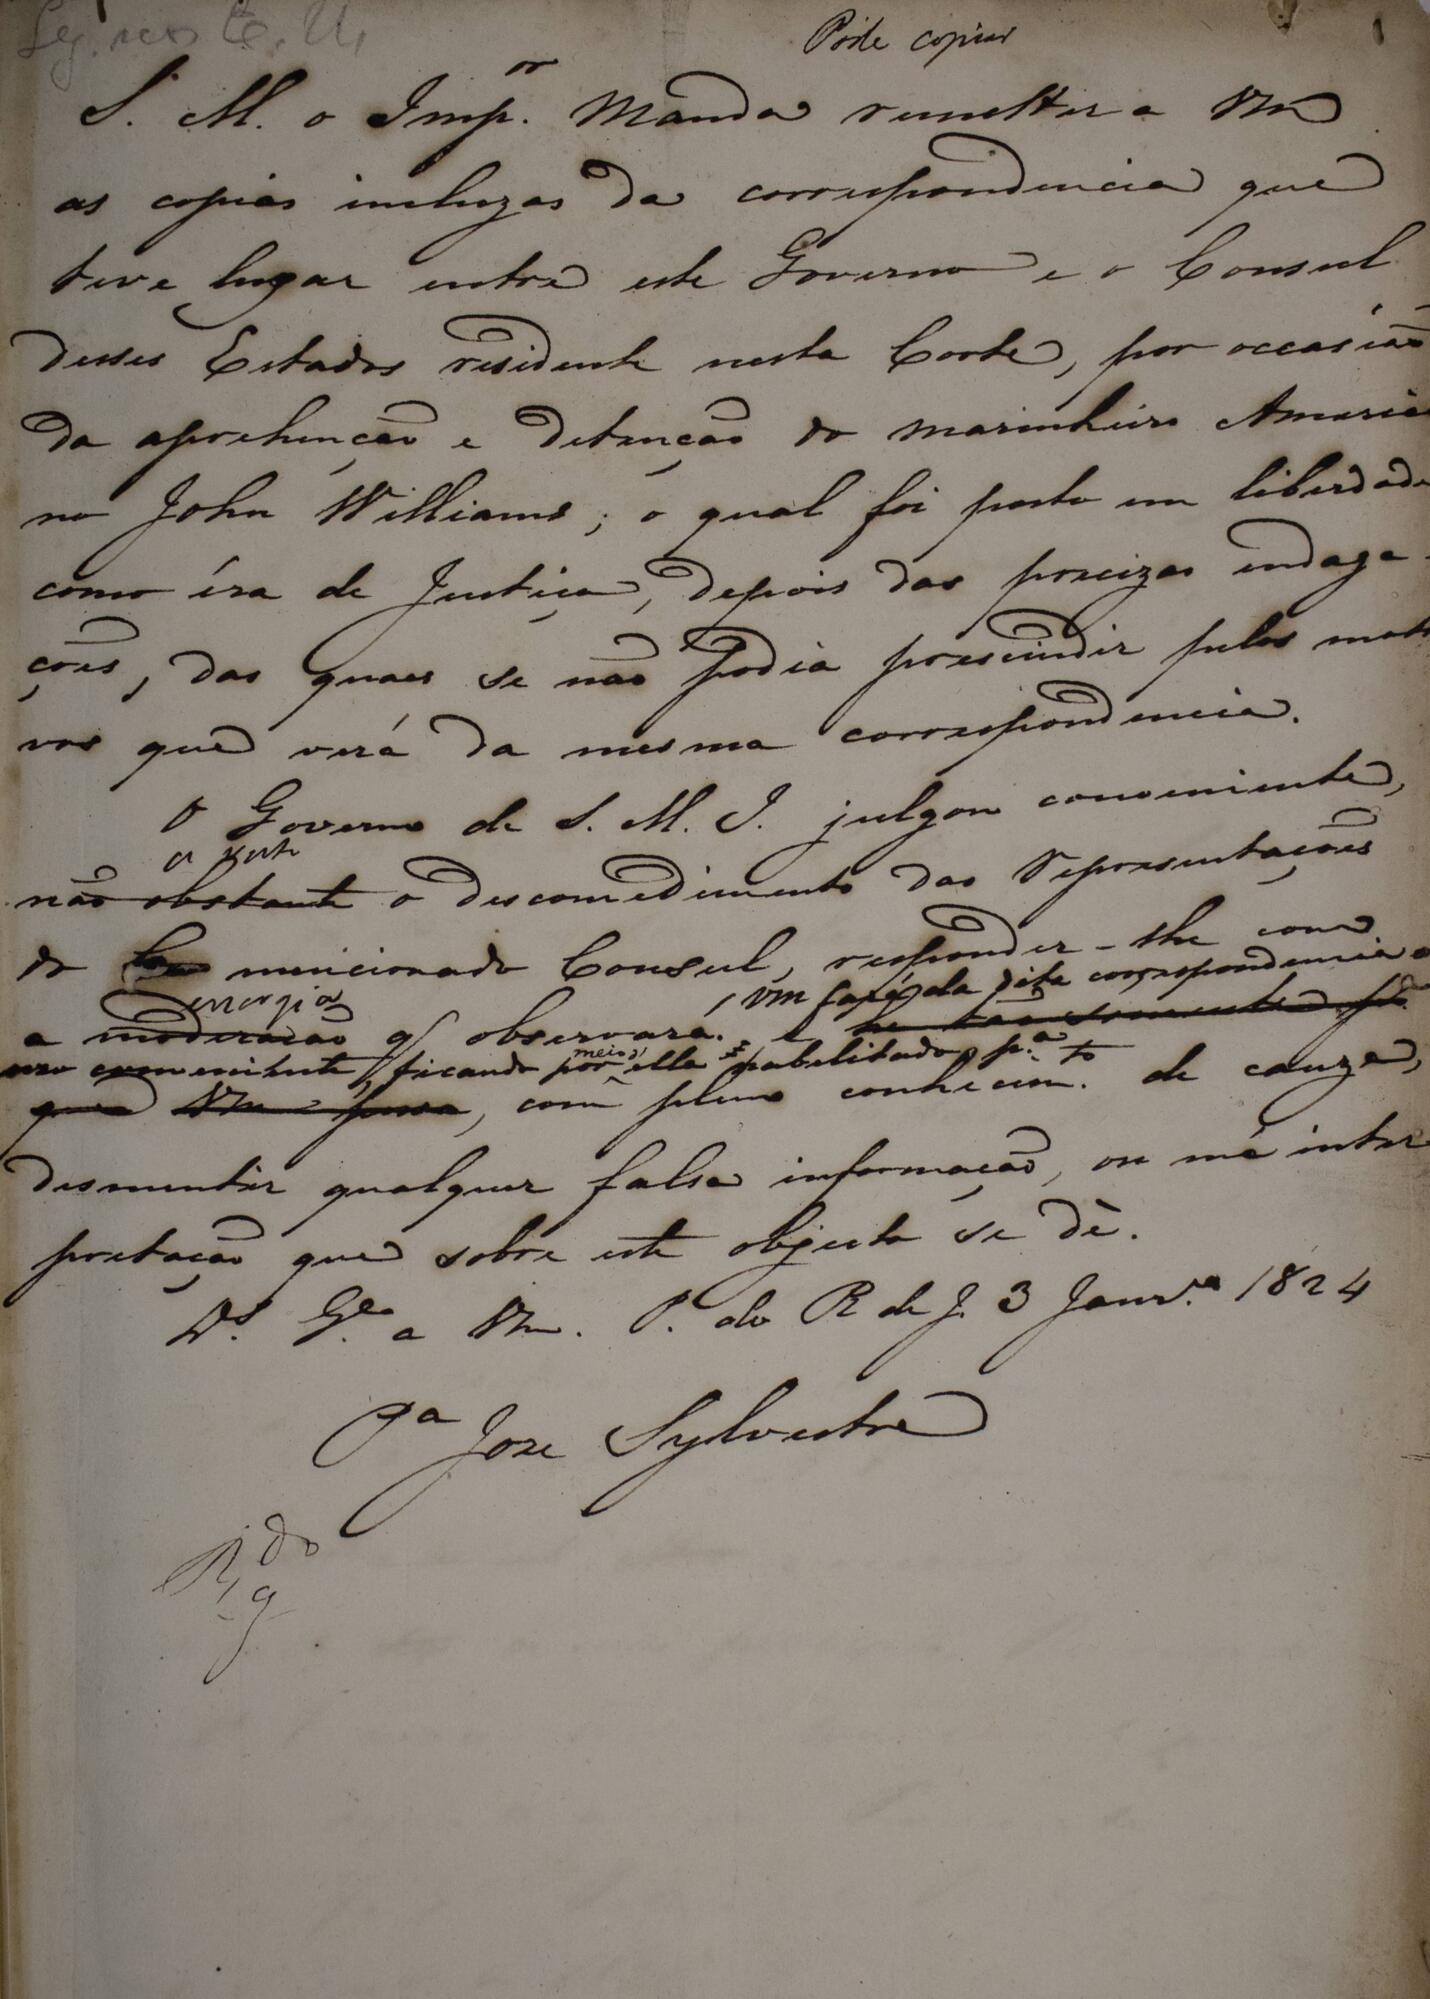 Pode copiar
S. M. o Imp.or Manda remetter a Vm
as copias incluzas da correspondencia que
teve lugar entre este Governo e o Consul
desses Estados residente nesta Corte, por occasião
da aprehenção e detenção do marinheiro America
no John Williams; o qual foi posto em liberdade
como éra de Justiça, depois das precizas indaga-
ções, das quaes se não podia prescindir pelos moti
vos que verá da mesma correspondencia.
O Governo de S. M. I. julgou conveniente,
não obstante o descomedimento das representações
do mencionado Consul, responder-lhe com
energia
Vm fará da dita correspondencia o
a moderação q observará. E
uso conveniente, ficando por meio d'ella habilitado p.a
que Vm possa, com pleno conhecim.to de cauza,
desmentir qualquer falsa informação, ou má inter
pretação que sobre este objecto se dê.
D.s G.e a Vm. P. do R de J. 3 Janr.o 1824
P.a Joze Sylvestre